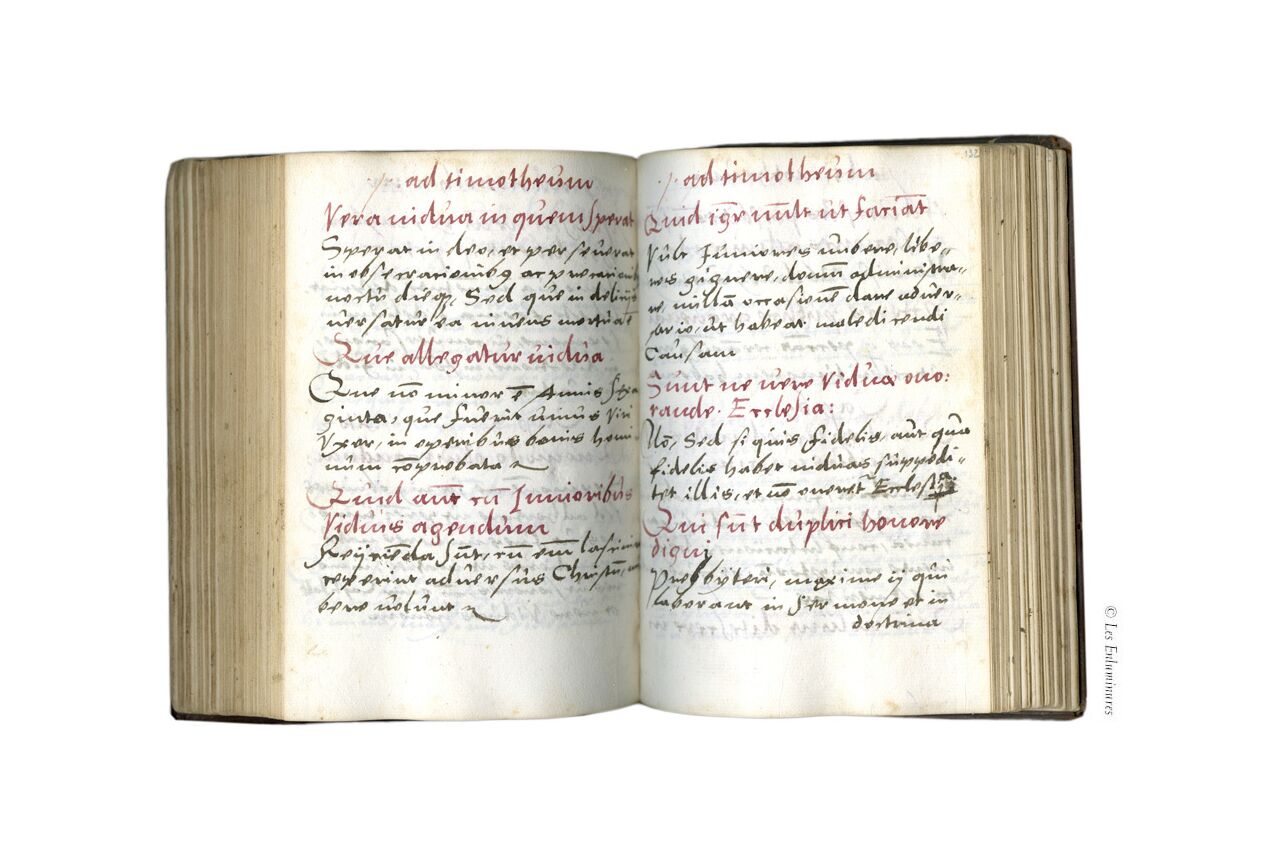 p. ad timotheum
Vera uidua in quem sperat
Sperat in deo, et perseuerat
in obsecracionibꝫ ac precacionibꝫ
noctu dieqꝫ, Sed que in delicijs
uersatur ea iuuens mortua ē
Que allegatur uidua
Que nō minor ē Annis Sexa
ginta, que fuerit unius Viri
Vxor, in operibus bonis homi
num cōprobata
Quid aūt cū Iunioribus
Viduis agendum
Reijciēda sūt, cū em̄ lasciuire
ceperint aduersus Christū,
bere uolunt
132
p. ad timotheum
Quid igr̄ uult ut faciāt
Vult Iuniores nubere, libe-
ros gignere, domū administra-
re, nullā occasionē dare aduer-
sario, ut habeat maledicendi
Causam
Sunt ne uere Viduæ ono:
rande. Ecclesia:
Nō, Sed si quis fidelis, aut qua
fidelis habet uiduas suppedi-
tet illis, et nō oneret Ecclesia
Qui sūt duplici honore
digni
Presbÿteri, maxime ij qui
laborant in Sermone et in
doctrina
© Les Enluminures